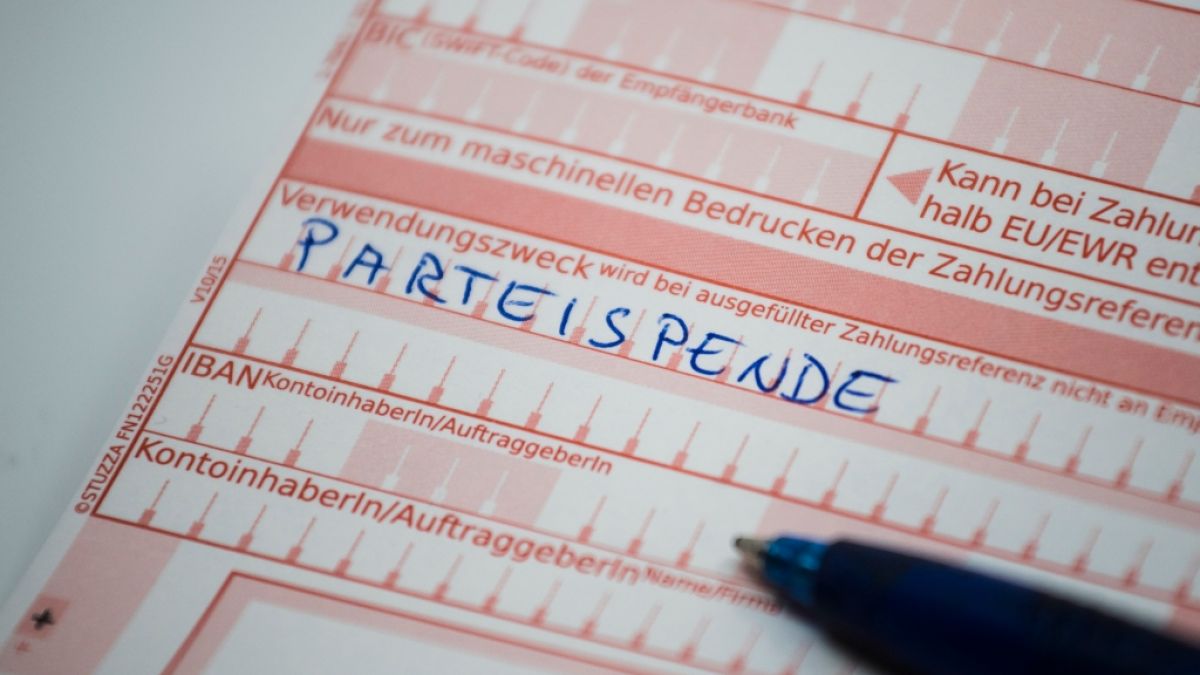 BIC (SWIFT-Code) der Empfängerbank
Kann bei Zahlun
halb EU/EWR ent
Nur zum maschinellen Bedrucken der Zahlungsreferen
Verwendungszweck wird bei ausgefüllter Zahlungsreferenz nicht an Emp
PARTEISPENDE
IBAN KontoinhaberIn/AuftraggeberIn
KontoinhaberIn/AuftraggeberIn Name/Firma
©STUZZA FN122251G
V10/15